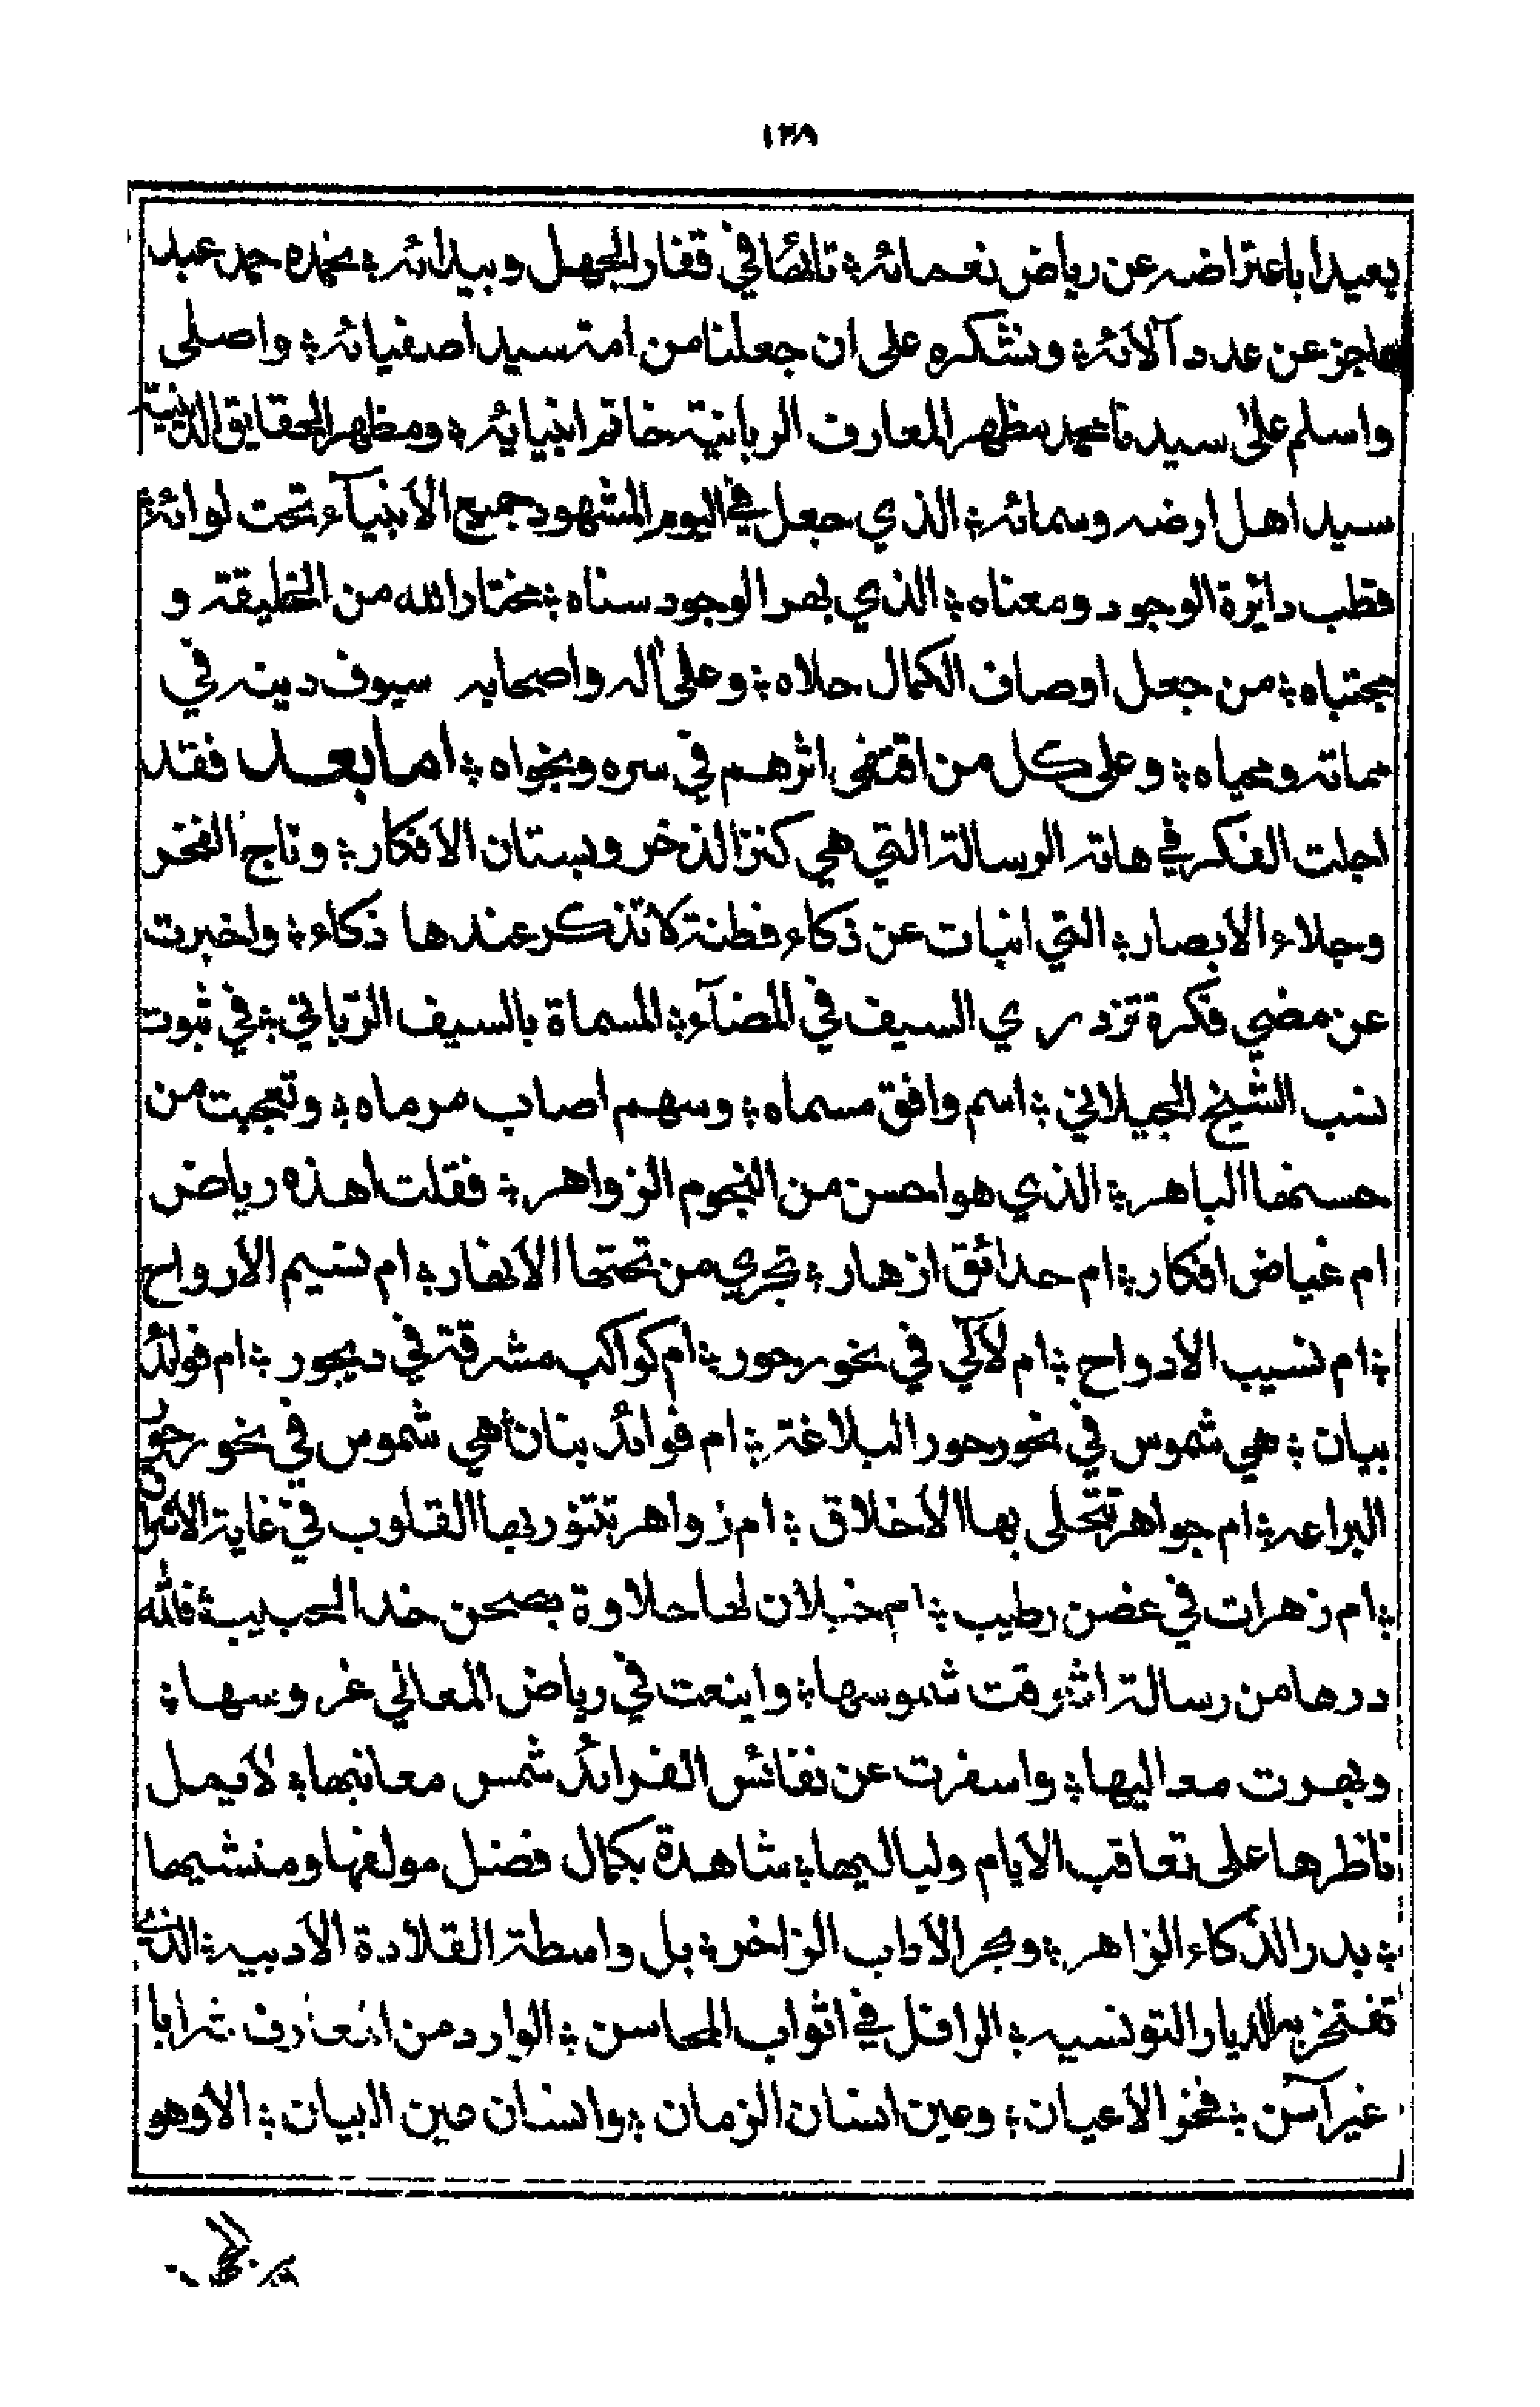 ١٣٨
بعيدا باعتراضه عن رياض نعمائه ؛ تائها في قفار الجهل وبيدائه ؛ نحمده حمد عبد
عاجز عن عدد آلائه ؛ ونشكره على ان جعلنا من امة سيد اصفيائه ؛ واصلى
واسلم على سيدنا محمد مظهر المعارف الربانية خاتم انبيائه ؛ ومظهر الحقايق الدنية
سيد اهل ارضه وسمائه ؛ الذي جعل في اليوم المشهود جميع الانبيآء تحت لوائه ؛
قطب دائرة الوجود ومعناه ؛ الذي بهر الوجود سناه ؛ مختار الله من الخليقة و
مجتباه ؛ من جعل اوصاف الكمال حلاه ؛ وعلى آله واصحابه سيوف دينه في
مماته ومحياه ؛ وعلى كل من اقتفى اثرهم في سره ونجواه ؛ اما بعد فقد
اجلت الفكر في هاته الرسالة التي هي كنز الذخر وبستان الافكار ؛ وتاج الفخر
وجلاء الابصار ؛ التي انبات عن ذكاء فطنة لا تذكر عندها ذكاء ؛ واخبرت
عن مضي فكرة تزدري السيف في المضآء ؛ المسماة بالسيف الرباني ؛ في ثبوت
نسب الشيخ الجيلاني ؛ اسم وافق مسماه ؛ وسهم اصاب مرماه ؛ وتعجبت من
حسنها الباهر ؛ الذي هو احسن من النجوم الزواهر ؛ فقلت اهذه رياض
ام غياض افكار ؛ ام حدائق ازهار ؛ تجري من تحتها الانهار ؛ ام نسيم الارواح
؛ ام نسيب الادواح ؛ ام لآلي في نحور حور ؛ ام كواكب مشرقة في ديجور ؛ ام فوائد
بيان ؛ هي شموس في نحور حور البلاغة ؛ ام فوائد بنان هي شموس في نحور حور
البراعه ؛ ام جواهر تتحلى بها الاخلاق ؛ ام زواهر تتنور بها القلوب في غاية الاشراق
؛ ام زهرات في غصن رطيب ؛ ام خيلان لها حلاوة بصحن خد الحبيب ؛ فلله
درها من رسالة اشرقت شموسها ؛ واينعت في رياض المعالي غروسها ؛
وبهرت معاليها ؛ واسفرت عن نفائس الفرائد شمس معانيها ؛ لا يمل
ناظرها على تعاقب الايام ولياليها ؛ شاهدة بكمال فضل مولفها ومنشيها
؛ بدر الذكاء الزاهر ؛ وبحر الآداب الزاخر ؛ بل واسطة القلادة الادبيه ؛ الذي
تفتخر به الديار التونسيه ؛ الرافل في اثواب المحاسن ؛ الوارد من المعارف شرابا
غير آسن ؛ فخر الاعيان ؛ وعين انسان الزمان ؛ وانسان عين البيان ؛ الا وهو